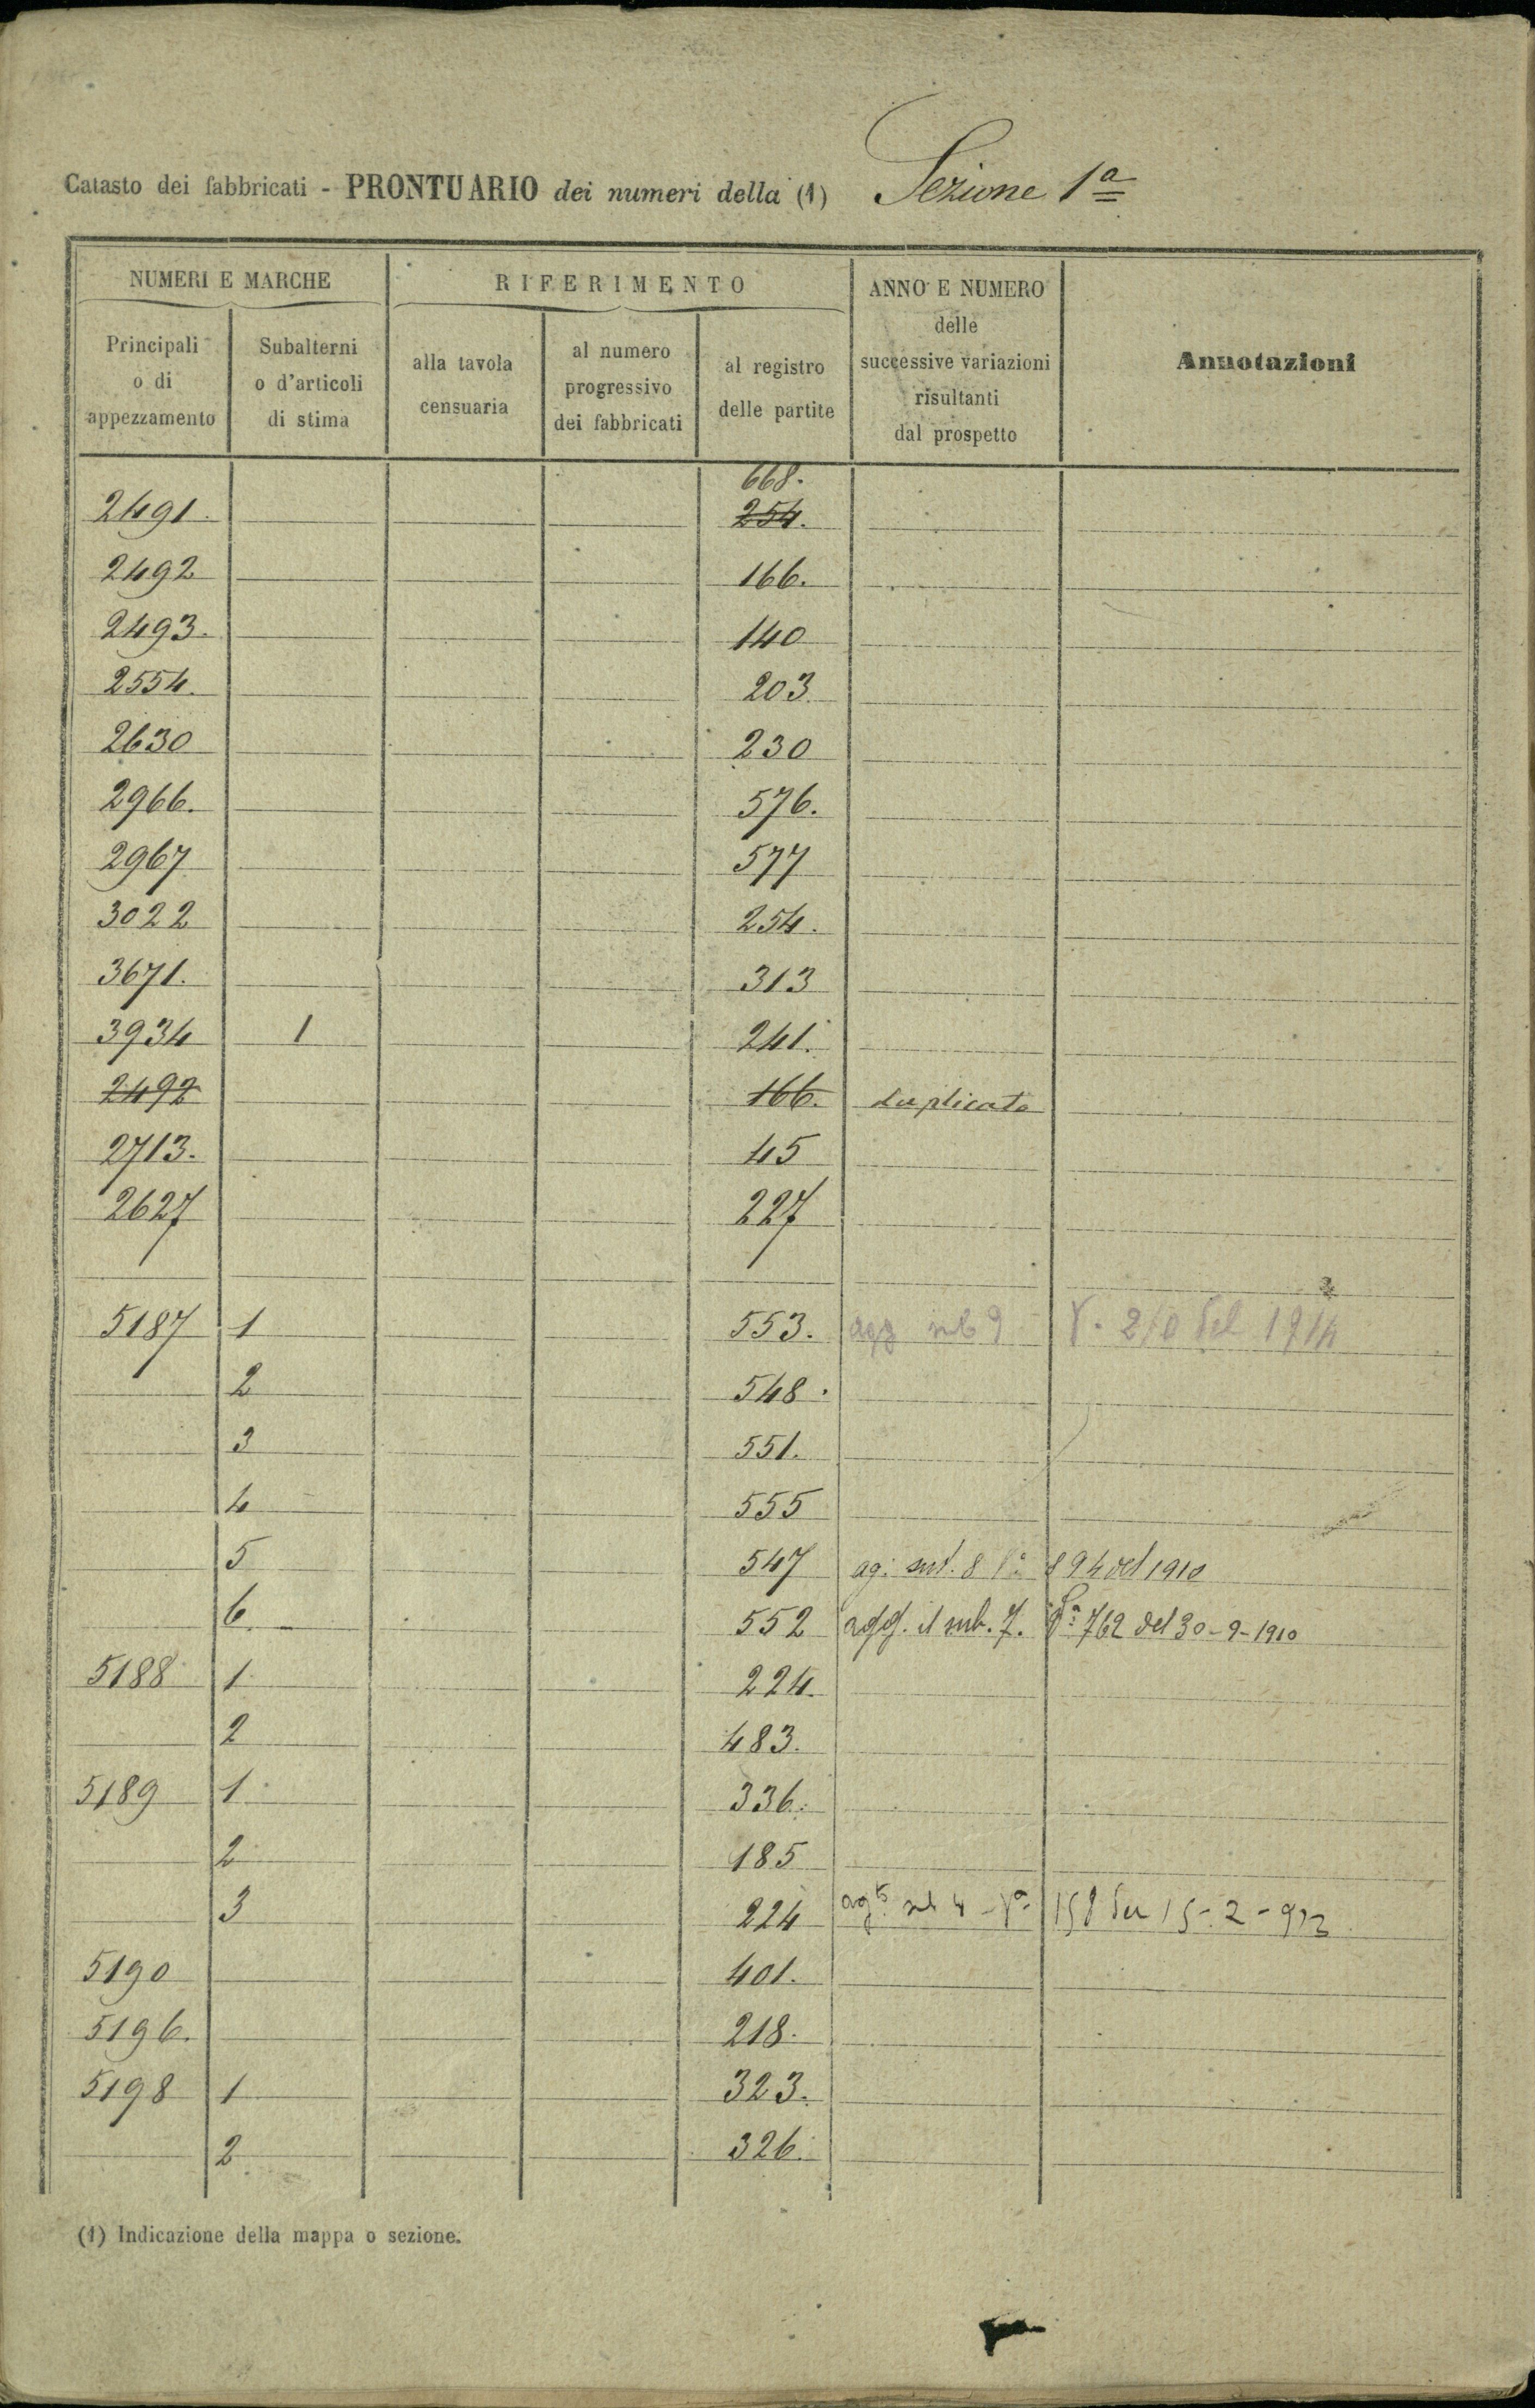 Catasto dei fabbricati - PRONTUARIO dei numeri della (1) Sezione 1ª
NUMERI E MARCHE
RIFERIMENTO
ANNO E NUMERO
delle
successive variazioni
risultanti
dal prospetto
Annotazioni
Principali
o di
appezzamento
Subalterni
o d'articoli
di stima
alla tavola
censuaria
al numero
progressivo
dei fabbricati
al registro
delle partite
668.
2491. 254.
2492 166.
2493. 140
2554. 203
2630 230
2966. 576.
2967 577
3022 254.
3671. 313
3934 1 241.
2492 166. duplicato
2713. 45
2627 227
5187 1 553. agg sub 9 del 1914
2 548.
3 551.
4 555
5 547 ag. 8 94 del 1910
6. 552 agg. il sub. 7. 762 del 30-9-1910
5188 1 224.
2 483.
5189 1 336.
2 185
3 224 sub 4 158 15-2-912
5190 401.
5196. 218.
5198 1 323.
2 326.
(1) Indicazione della mappa o sezione.